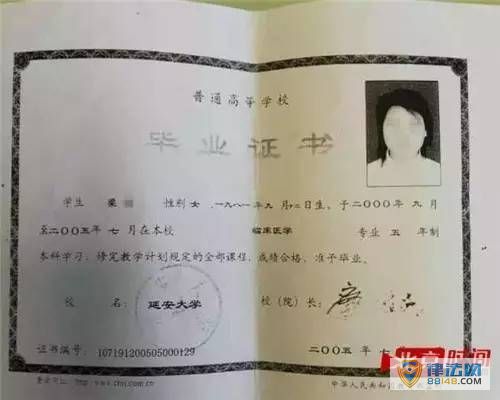 普通高等学校
毕业证书
学生 梁 性别 女 ,一九八一年九月十二日生,于二〇〇〇年 九月
至二〇〇五年 七月在本校 临床医学 专业 五 年制
本科学习,修完教学计划规定的全部课程,成绩合格,准予毕业。
校 名: 延安大学 校(院)长:
证书编号: 107191200505000129 二〇〇五年
查询网址: http://www.chsi.com.cn 中华人民共和国
律法网
88148.com